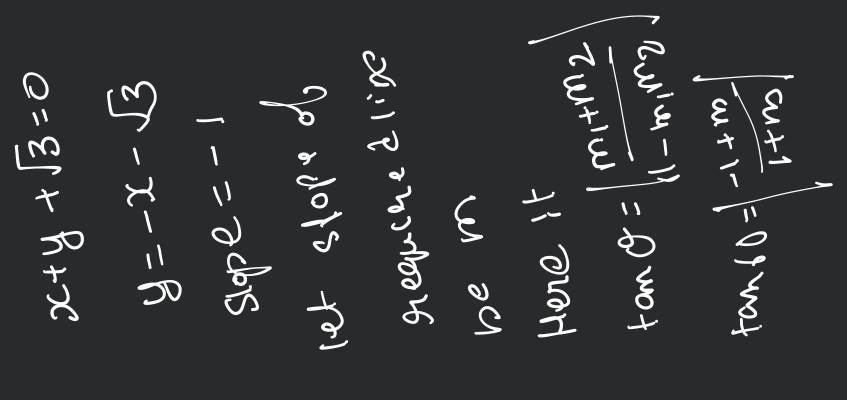 x+y+√3=0
y=-x-√3
Slope=-1
let slope of
required line
be m
Here it
tanθ=|(m1+m2)/(1-m1m2)|
tan60=|(-1+m)/(m+1)|